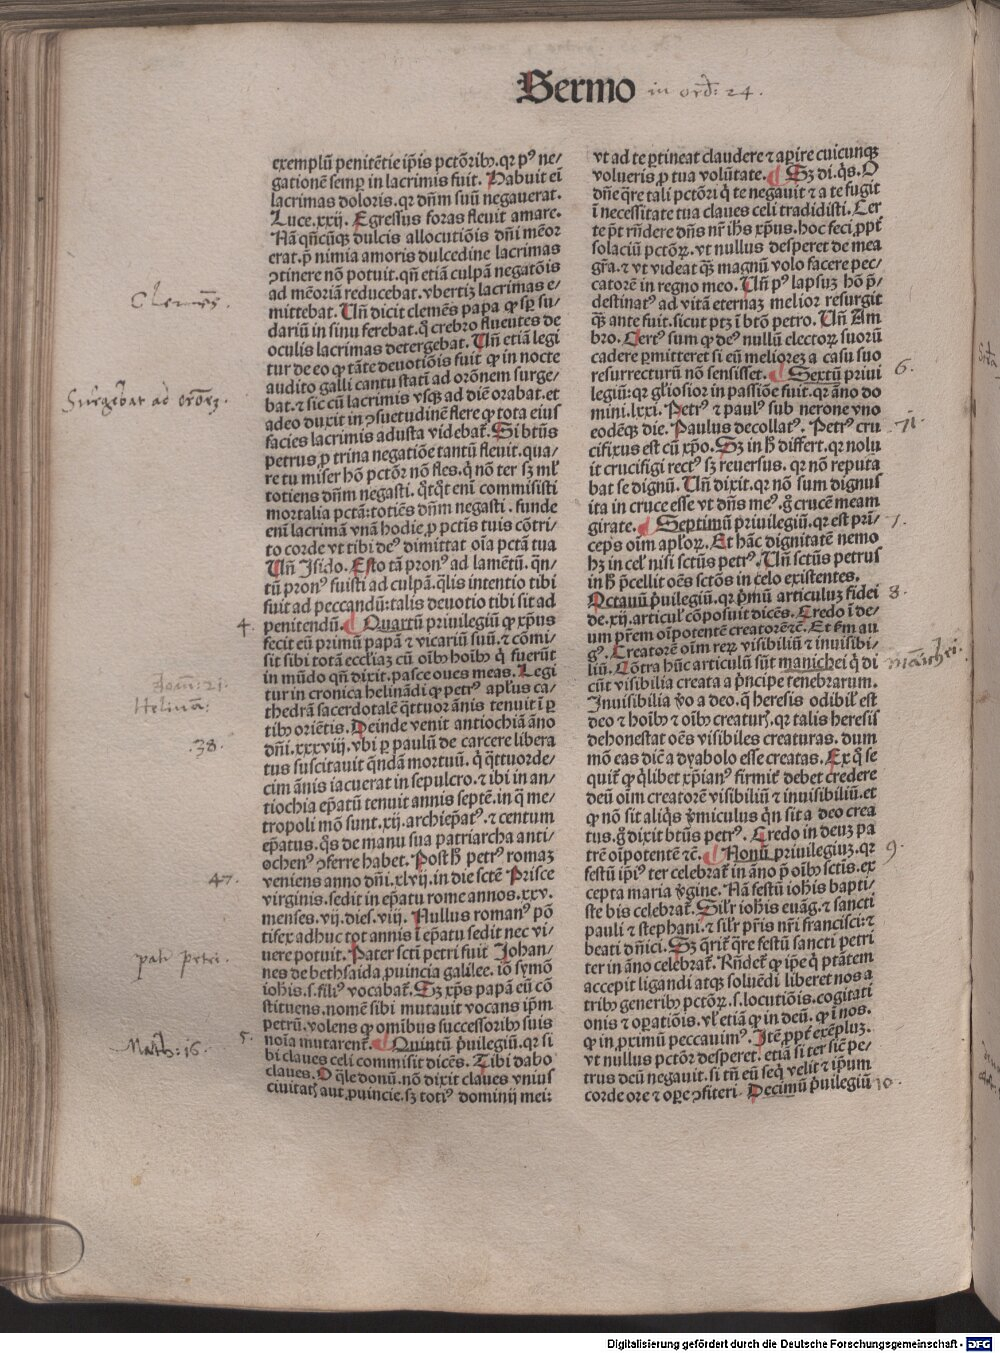 Sermo in ord: 24.
exemplū penitētie ip̄is pctōribꝰ. qr pꝰ ne⸗
gationē semꝑ in lacrimis fuit. Habuit eī
lacrimas doloris. qr dn̄m suū negauerat.
Luce. xxij. Egressus foras fleuit amare.
Nā qn̄cūqꝫ dulcis allocutiōis dn̄i mēor
erat. p̄ nimia amoris dulcedine lacrimas
ꝯtinere nō potuit. qn̄ etiā culpā negatōis
ad mēoriā reducebat. vbertiꝫ lacrimas e⸗
mittebat. Un̄ dicit clemēs papa ꝙ sꝑ su⸗
dariū in sinu ferebat. q̄ crebro fluentes de
oculis lacrimas detergebat. Un̄ etiā legi
tur de eo ꝙ tāte deuotiōis fuit ꝙ in nocte
audito galli cantu statī ad orōnem surge⸗
bat. ⁊ sic cū lacrimis vsqꝫ ad diē orabat. et
adeo duxit in ꝯsuetudinē flere ꝙ tota eius
facies lacrimis adusta videbat᷑. Si btūs
petrus ꝓ trina negatiōe tantū fleuit. qua⸗
re tu miser hō pctōr nō fles. q̇ nō ter sꝫ ml̓
totiens dn̄m negasti. q̇tq̇t enī commisisti
mortalia pctā: totiēs dn̄m negasti. funde
enī lacrimā vnā hodie. ꝓ pctīs tuis cōtri⸗
to corde vt tibi deꝰ dimittat oīa pctā tua
Un̄ Isido. Esto tā pronꝰ ad lamētū. qn̄⸗
tū pronꝰ fuisti ad culpā. q̄lis intentio tibi
fuit ad peccandū: talis deuotio tibi sit ad
penitendū. Quartū priuilegiū ꝙ xp̄us
fecit eū primū papā ⁊ vicariū suū. ⁊ cōmi⸗
sit sibi totā eccl̓iaꝫ cū oībꝰ hoībꝰ q̇ fuerūt
in mūdo qn̄ dixit. pasce oues meas. Legi
tur in cronica helinādi ꝙ petrꝰ apl̓us ca⸗
thedrā sacerdotalē q̄ttuor ānis tenuit ī ꝑ
tibꝰ oriētis. Deinde venit antiochiā āno
dn̄i. xxxviij. vbi ꝑ paulū de carcere libera
tus suscitauit q̄ndā mortuū. q̇ q̄ttuorde⸗
cim ānis iacuerat in sepulcro. ⁊ ibi in an⸗
tiochia ep̄atū tenuit annis septē. in q̄ me⸗
tropoli mō sunt. xij. archiep̄atꝰ. ⁊ centum
ep̄atus. q̄s de manu sua patriarcha anti⸗
ochenꝰ ꝯferre habet. Post h̄ petrꝰ romaꝫ
veniens anno dn̄i. xlvij. in die sctē Prisce
virginis. sedit in ep̄atu rome annos. xxv.
menses. vij. dies. viij. Nullus romanꝰ pō
tifex adhuc tot annis ī ep̄atu sedit nec vi⸗
uere potuit. Pater scti petri fuit Johan⸗
nes de bethsaida ꝓuincia galilee. iō symō
iohis. s. filiꝰ vocabat᷑. Sꝫ xp̄s papā eū cō
stituens. nomē sibi mutauit vocans ip̄m
petrū. volens ꝙ omībus successoribꝰ suis
noīa mutarent᷑. Quintū p̄uilegiū. qr si⸗
bi claues celi commisit dicēs. Tibi dabo
claues. O q̄le donū. nō dixit claues vnius
ciuitat̓ aut ꝓuincie. sꝫ totiꝰ dominij mei:
vt ad te ꝑtineat claudere ⁊ aꝑire cuicunqꝫ
volueris ꝓ tua volūtate. Sꝫ di. q̇s. O
dn̄e q̄re tali pctōri q̇ te negauit ⁊ a te fugit
ī necessitate tua claues celi tradidisti. Cer
te pt̄ rn̄dere dn̄s nr̄ ih̄s xp̄us. hoc feci ꝓpt̓
solaciū pctōꝝ. vt nullus desperet de mea
gr̄a. ⁊ vt videat q̄ꝫ magnū volo facere pec⸗
catorē in regno meo. Un̄ pꝰ lapsuꝫ hō p̄⸗
destinatꝰ ad vitā eternaꝫ melior resurgit
q̄ꝫ ante fuit. sicut ptꝫ ī btō petro. Un̄ Am
bro. Certꝰ sum ꝙ deꝰ nullū electoꝝ suorū
cadere ꝑmitteret si eū melioreꝫ a casu suo
resurrecturū nō sensisset. Sextū priui
legiū: qr gl̓iosior in passiōe fuit. qr āno do
mini. lxxi. Petrꝰ ⁊ paulꝰ sub nerone vno
eodēqꝫ die. Paulus decollatꝰ. Petrꝰ cru
cifixus est cū xp̄o. Sꝫ in h̄ differt. qr nolu
it crucifigi rectꝰ sꝫ reuersus. qr nō reputa
bat se dignū. Un̄ dixit. qr nō sum dignus
ita in cruce esse vt dn̄s meꝰ. g̊ crucē meam
girate. Septimū priuilegiū. qr est pri̅⸗
ceps oīm apl̓oꝝ. Et hāc dignitatē nemo
hꝫ in cel̓ nisi sctūs petrꝰ. Un̄ sctūs petrus
in h̄ p̄cellit oēs sctōs in celo existentes.
Octauū p̄uilegiū. qr p̄mū articuluꝫ fidei
de. xij. articul̓ cōposuit dicēs. Credo ī de⸗
um pr̄em oīpotentē creatorē ⁊c. Et ẜm au
gꝰ. Creatorē oīm reꝝ visibiliū ⁊ inuisibi⸗
liū. Cōtra hūc articulū sūt manichei q̇ di
cūt visibilia creata a p̄ncipe tenebrarum.
Inuisibilia v̓o a deo. q̄ heresis odibil̓ est
deo ⁊ hoībꝰ ⁊ oībꝰ creatur̓. qr talis heresis
dehonestat oēs visibiles creaturas. dum
mō eas dicē a dyabolo esse creatas. Ex q̊ se
quit᷑ ꝙ q̇libet xp̄ianꝰ firmit᷑ debet credere
deū oīm creatorē visibiliū ⁊ inuisibiliū. et
ꝙ nō sit aliq̇s v̓miculus q̇n sit a deo crea
tus. g̊ dixit btūs petrꝰ. Credo in deuꝫ pa
trē oīpotentē ⁊c. Nonū priuilegiuꝫ. qr
festū ip̄iꝰ ter celebrat᷑ in āno p̄ oībꝰ sctis. ex
cepta maria v̓gine. Nā festū ioh̄is bapti⸗
ste bis celebrat᷑. Sil̓r ioh̄is euāg. ⁊ sancti
pauli ⁊ stephani. ⁊ sil̓r pr̄is nr̄i francisci: ⁊
beati dn̄ici. Sꝫ q̄rit᷑ q̄re festū sancti petri
ter in āno celebrat᷑. Rn̄det᷑ ꝙ ip̄e q̇ ptātem
accepit ligandi atqꝫ soluēdi liberet nos a
tribꝰ generibꝰ pctōꝝ. s. locutiōis. cogitati
onis ⁊ oꝑatiōis. vl̓ etiā ꝙ in deū. ꝙ ī nos.
ꝙ in ꝓximū peccauimꝰ. Itē ꝓpt̓ exēpluꝫ.
vt nullus pctōr desperet. etiā si ter siē pe⸗
trus deū negauit. si tn̄ eū seq̇ velit ⁊ ip̄um
corde ore ⁊ oꝑe ꝯfiteri. Decimū p̄uilegiū
Clemēs.
Surgebat ad orōeꝫ.
4.
Joan: 21.
Helinā:
.38.
47.
patr petri.
5.
Math: 16.
6.
71.
7.
8.
manichei.
9.
10.
Digitalisierung gefördert durch die Deutsche Forschungsgemeinschaft - DFG